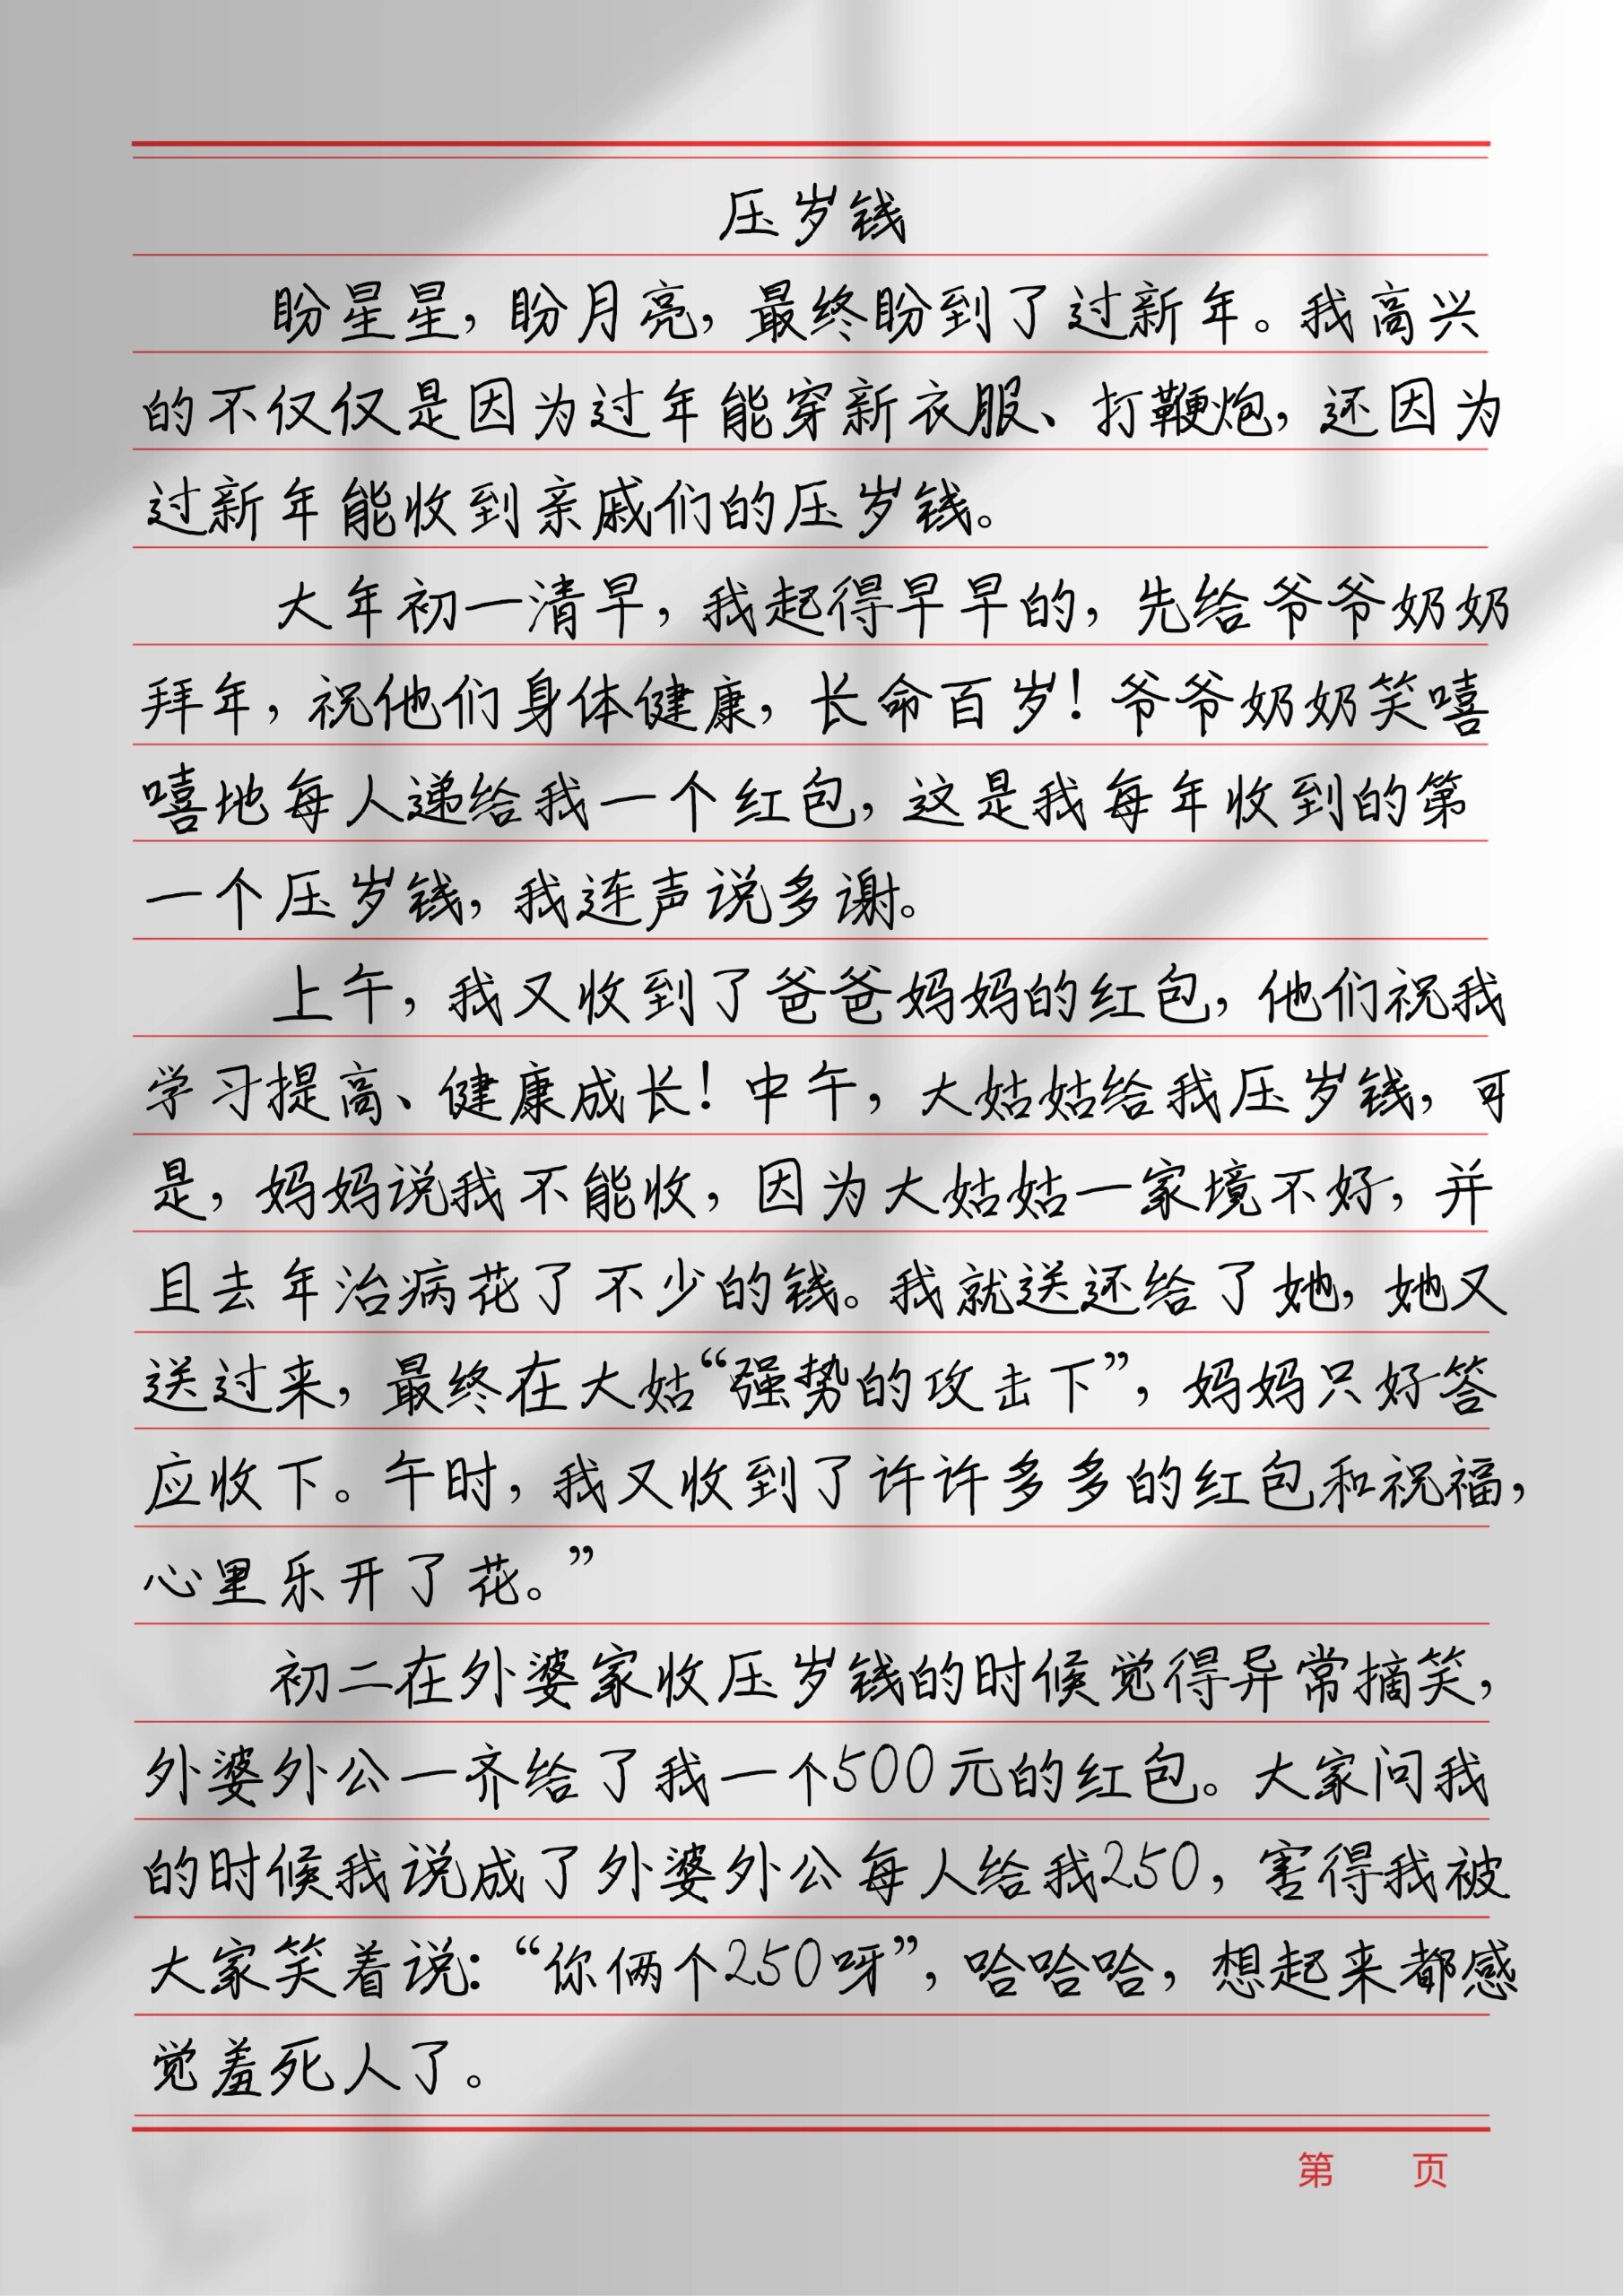 压岁钱
盼星星，盼月亮，最终盼到了过新年。我高兴
的不仅仅是因为过年能穿新衣服、打鞭炮，还因为
过新年能收到亲戚们的压岁钱。
大年初一清早，我起得早早的，先给爷爷奶奶
拜年，祝他们身体健康，长命百岁！爷爷奶奶笑嘻
嘻地每人递给我一个红包，这是我每年收到的第
一个压岁钱，我连声说多谢。
上午，我又收到了爸爸妈妈的红包，他们祝我
学习提高、健康成长！中午，大姑姑给我压岁钱，可
是，妈妈说我不能收，因为大姑姑一家境不好，并
且去年治病花了不少的钱。我就送还给了她，她又
送过来，最终在大姑“强势的攻击下”，妈妈只好答
应收下。午时，我又收到了许许多多的红包和祝福，
心里乐开了花。”
初二在外婆家收压岁钱的时候觉得异常摘笑，
外婆外公一齐给了我一个500元的红包。大家问我
的时候我说成了外婆外公每人给我250，害得我被
大家笑着说：“你俩个250呀”，哈哈哈，想起来都感
觉羞死人了。
第 页